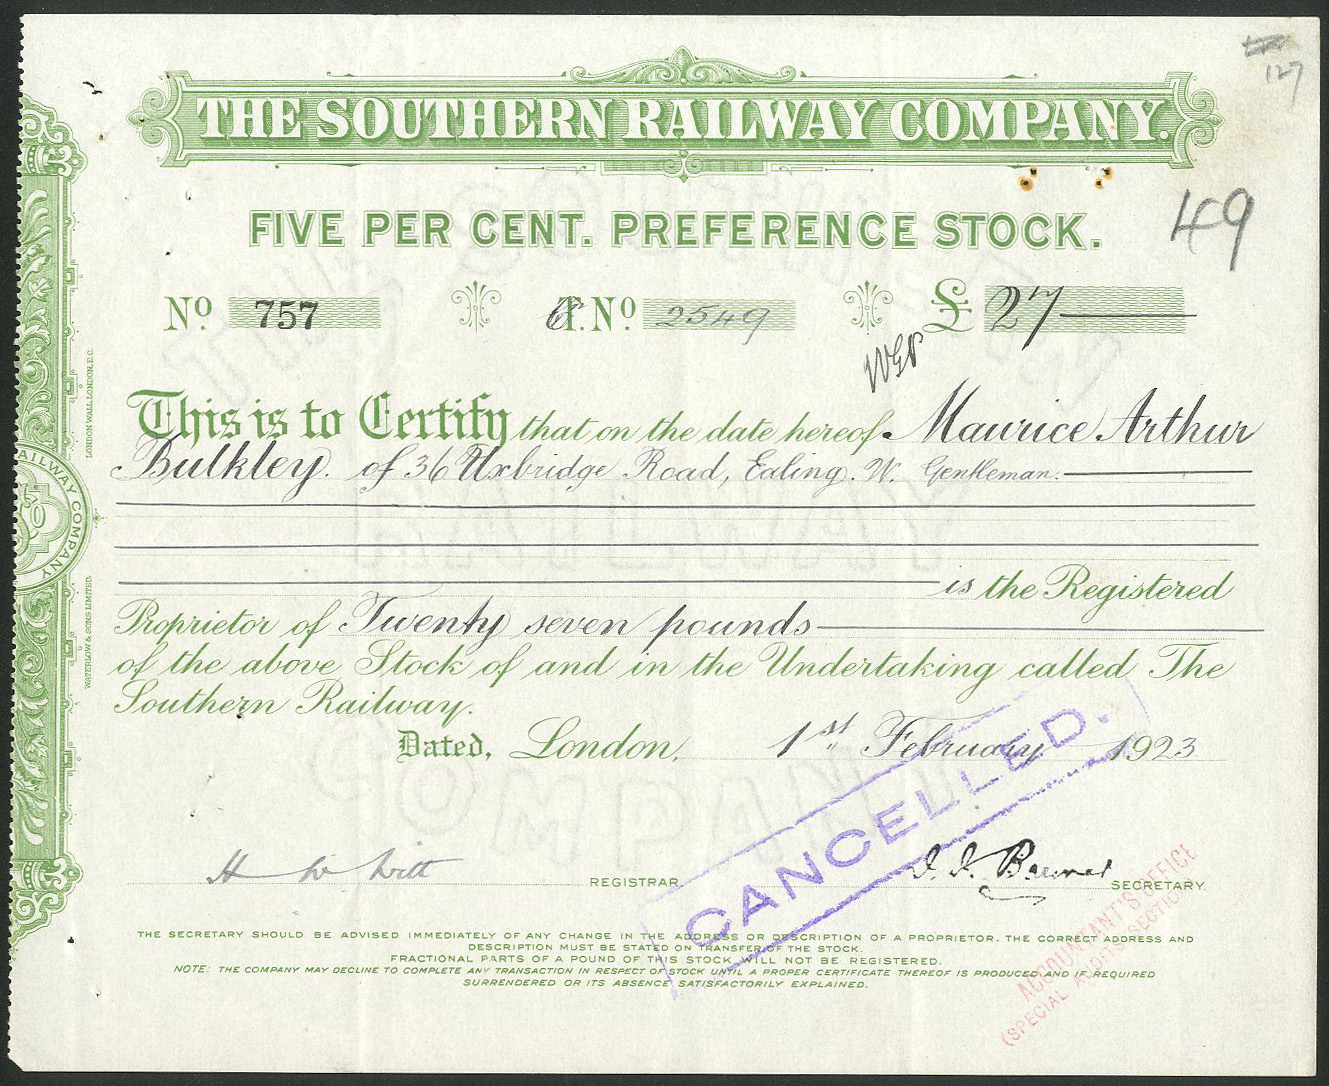 127
THE SOUTHERN RAILWAY COMPANY.
FIVE PER CENT. PREFERENCE STOCK.
49
No 757 T. No 2549 £ 27
This is to Certify that on the date hereof Maurice Arthur
Bulkley. of 36 Uxbridge Road, Ealing. W. Gentleman.
is the Registered
Proprietor of Twenty seven pounds
of the above Stock of and in the Undertaking called The
Southern Railway.
Dated, London, 1st February 1923
CANCELLED.
REGISTRAR.
SECRETARY.
THE SECRETARY SHOULD BE ADVISED IMMEDIATELY OF ANY CHANGE IN THE ADDRESS OR DESCRIPTION OF A PROPRIETOR. THE CORRECT ADDRESS AND
DESCRIPTION MUST BE STATED ON TRANSFER OF THE STOCK.
FRACTIONAL PARTS OF A POUND OF THIS STOCK WILL NOT BE REGISTERED.
NOTE: THE COMPANY MAY DECLINE TO COMPLETE ANY TRANSACTION IN RESPECT OF STOCK UNTIL A PROPER CERTIFICATE THEREOF IS PRODUCED AND IF REQUIRED
SURRENDERED OR ITS ABSENCE SATISFACTORILY EXPLAINED.
ACCOUNTANT'S OFFICE
(SPECIAL AUDIT SECTION)
WATERLOW & SONS LIMITED, LONDON WALL, LONDON, E.C.
RAILWAY COMPANY